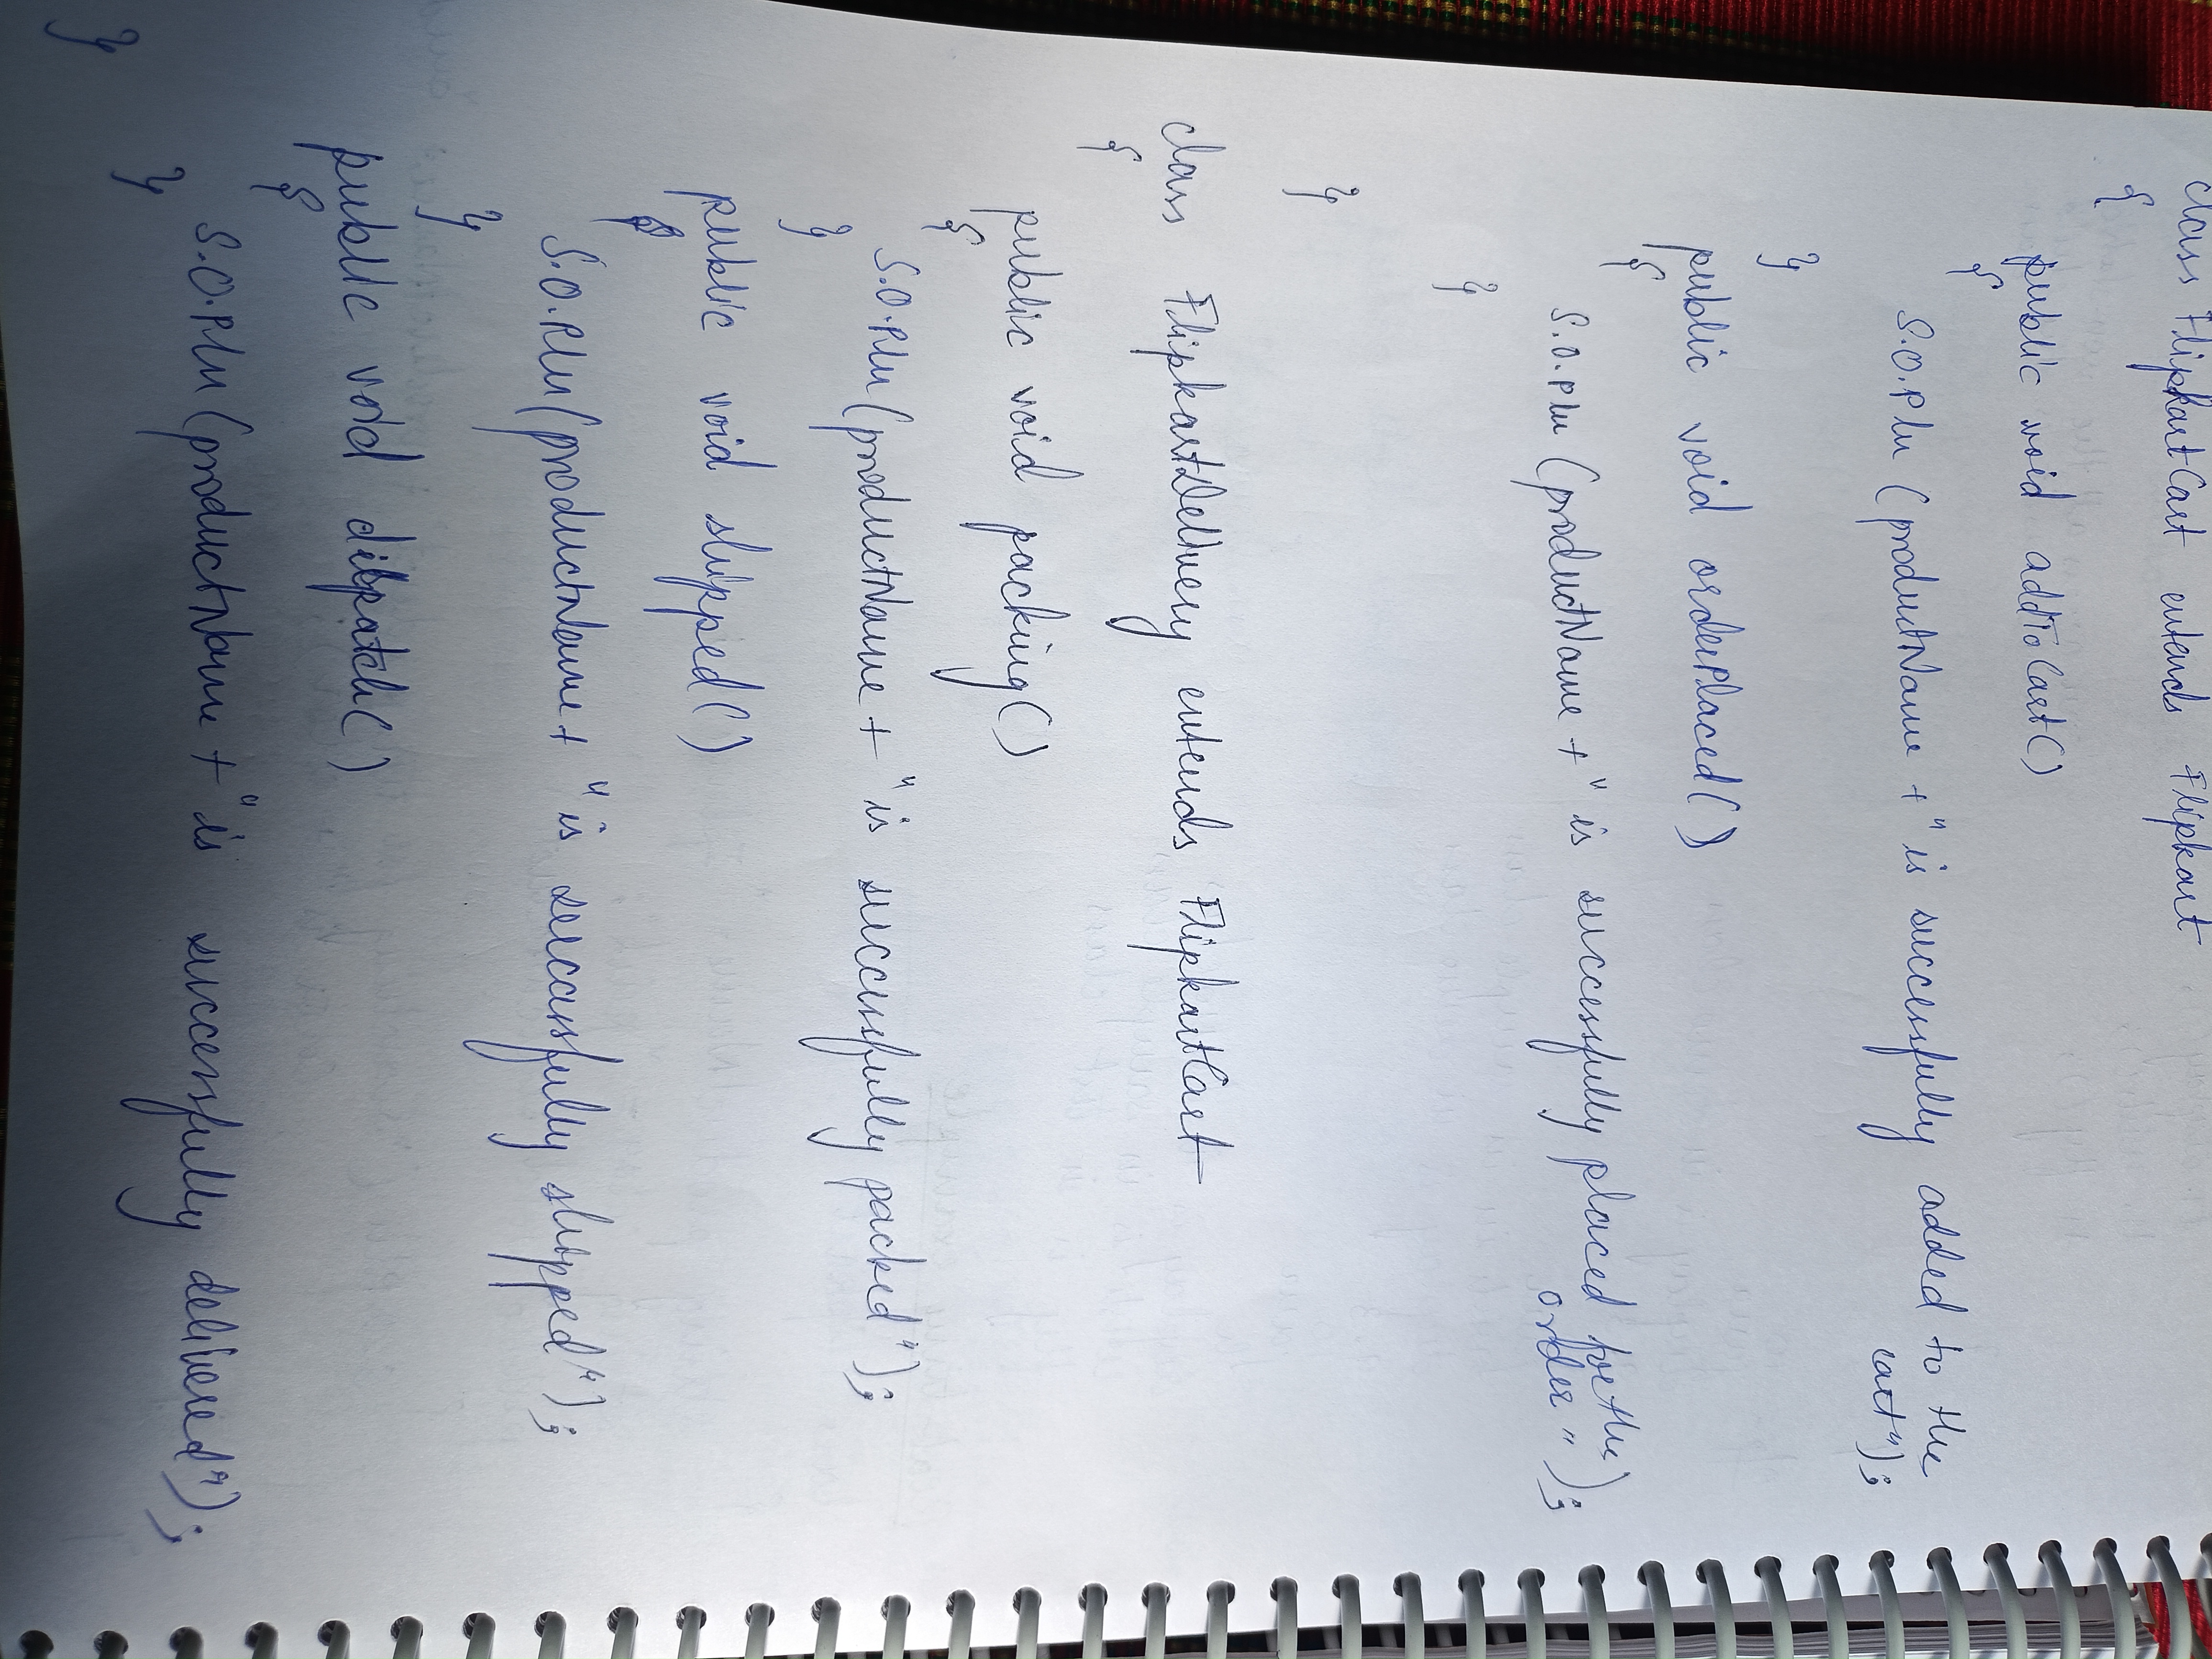 class FlipkartCart extends Flipkart
{
public void addToCart()
{
S.O.Pln (productName + " is successfully added to the
cart");
}
public void orderPlaced()
{
S.O.Pln (productName + " is successfully placed for the
order");
}
}
class FlipkartDelivery extends FlipkartCart
{
public void packing()
{
S.O.Pln (productName + " is successfully packed");
}
public void shipped()
{
S.O.Pln (productName + " is successfully shipped");
}
public void dispatch()
{
S.O.Pln (productName + " is successfully delivered");
}
}